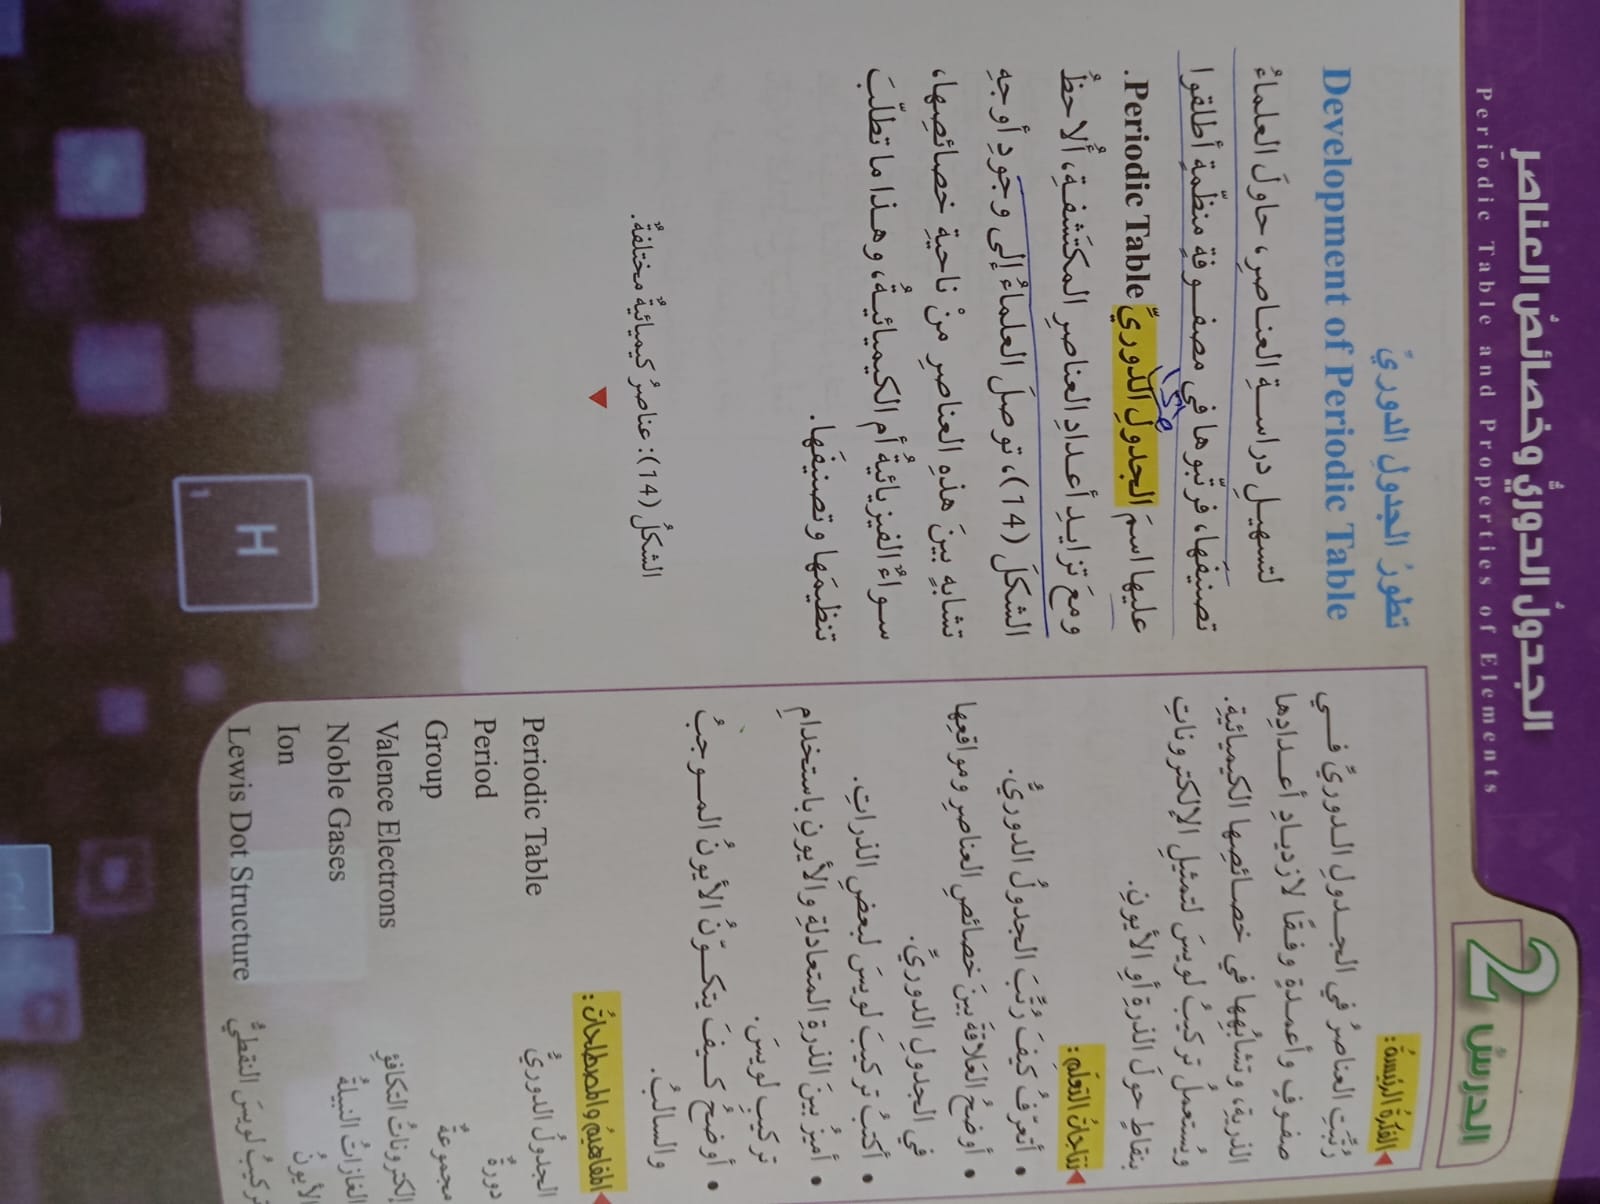 الدرسُ 2
الجدولُ الدوريُّ وخصائصُ العناصرِ
Periodic Table and Properties of Elements
الفكرةُ الرئيسةُ:
رُتِّبَتِ العناصرُ في الجدولِ الدوريِّ في
صفوفٍ وأعمدةٍ وفقًا لازديادِ أعدادِها
الذريةِ، وتشابُهِها في خصائصِها الكيميائيةِ.
ويُستعملُ تركيبُ لويسَ لتمثيلِ الإلكتروناتِ
بنقاطٍ حولَ الذرةِ أوِ الأيونِ.
نتاجاتُ التعلّمِ:
• أتعرّفُ كيفَ رُتِّبَ الجدولُ الدوريُّ.
• أوضحُ العَلاقةَ بينَ خصائصِ العناصرِ ومواقعِها
في الجدولِ الدوريِّ.
• أكتبُ تركيبَ لويسَ لبعضِ الذراتِ.
• أميزُ بينَ الذرةِ المتعادلةِ والأيونِ باستخدامِ
تركيبِ لويسَ.
• أوضحُ كيفَ يتكوّنُ الأيونُ الموجبُ
والسالبُ.
المفاهيمُ والمصطلحاتُ:
الجدولُ الدوريُّ Periodic Table
دورةٌ Period
مجموعةٌ Group
إلكتروناتُ التكافؤِ Valence Electrons
الغازاتُ النبيلةُ Noble Gases
الأيونُ Ion
تركيبُ لويسَ النقطيُّ Lewis Dot Structure
تطورُ الجدولِ الدوريِّ
Development of Periodic Table
لتسهيلِ دراسةِ العناصرِ، حاولَ العلماءُ
تصنيفَها، فرتّبوها في مصفوفةٍ منظّمةٍ أطلقوا
عليها اسمَ الجدولِ الدوريِّ Periodic Table.
ومعَ تزايدِ أعدادِ العناصرِ المكتَشفةِ، أُلاحظُ
الشكلَ (14)، توصلَ العلماءُ إلى وجودِ أوجهِ
تشابهٍ بينَ هذهِ العناصرِ منْ ناحيةِ خصائصِها،
سواءٌ الفيزيائيةُ أم الكيميائيةُ، وهذا ما تطلّبَ
تنظيمَها وتصنيفَها.
الشكلُ (14): عناصرُ كيميائيةٌ مختلفةٌ.
1
H